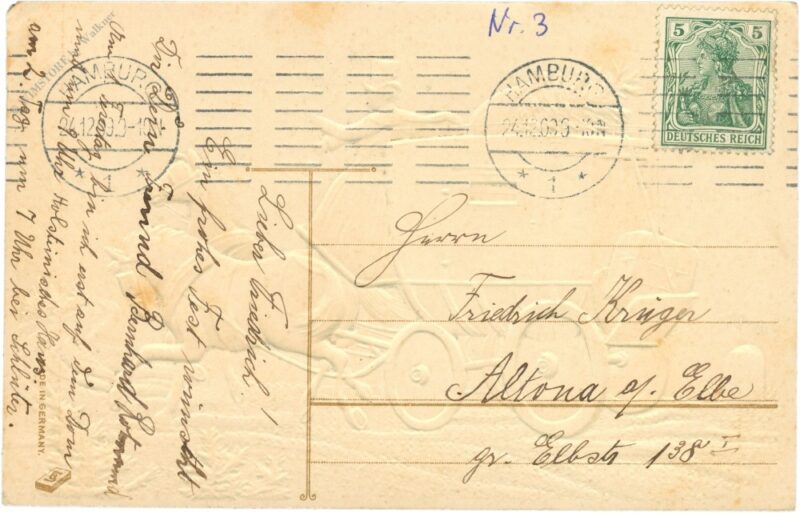 Nr. 3
5 5
DEUTSCHES REICH
HAMBURG
24.12.09.9-10N
* 1 *
HAMBURG
24.12.09.9-10N
* *
Lieber Friedrich!
Ein frohes Fest wünscht
Dir Dein Freund Bernhard
bin ich erst auf dem Dom
und um 9 Uhr Holsteinisches Haus.
am 2. Tag um 7 Uhr bei Schlüter.
Herrn
Friedrich Krüger
Altona a/ Elbe
gr. Elbstr 138 I
MADE IN GERMANY.